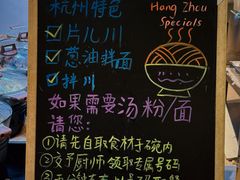 杭州特色
Hang Zhou
Specials
片儿川
葱油拌面
拌川
如果需要汤粉/面
请您：
①请先自取食材于碗内
②交予厨师 领取专属号码